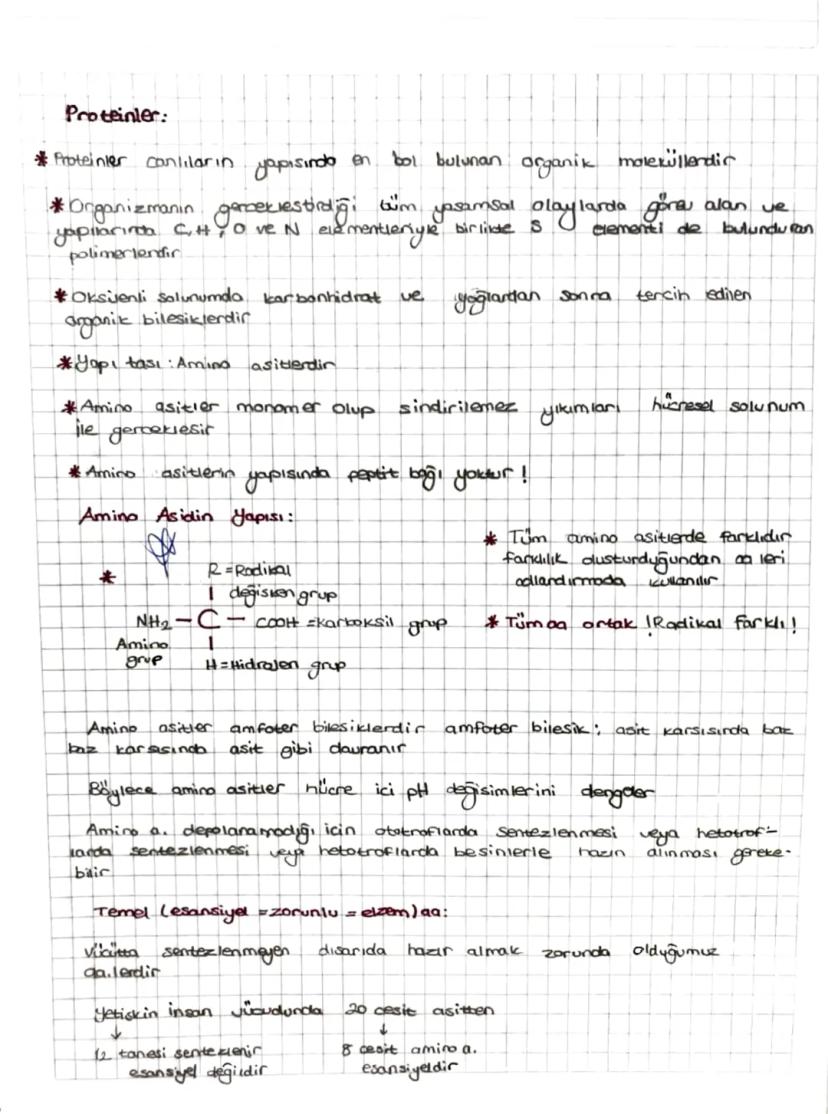 Proteinler:
* Proteinler canlıların yapısında en bol bulunan organik moleküllerdir
* Organizmanın gerceklestirdiği tüm yasamsal olaylarda görev alan ve
yapılarında C, H, O ve N elementleriyle birlikte S elementi de bulunduran
polimerlerdir
* Oksijenli solunumda karbonhidrat ve yağlardan sonra tercih edilen
organik bilesiklerdir
* Yapı tası : Amino asitlerdir
* Amino asitler monomer olup sindirilemez yıkımları hücresel solunum
ile gerceklesir
* Amino asitlerin yapısında peptit bağı yoktur !
Amino Asidin Yapısı :
* R = Radikal
değisken grup
NH₂ — C — COOH = karboksil grup
Amino
grup
H = Hidrojen grup
* Tüm amino asitlerde farklıdır
farklılık olusturduğundan aa leri
adlandırmada kullanılır
* Tüm aa ortak ! Radikal farklı !
Amino asitler amfoter bilesiklerdir amfoter bilesik ; asit karsısında baz
baz karsısında asit gibi davranır
Böylece amino asitler hücre ici pH değisimlerini dengeler
Amino a. depolanamadığı icin ototroflarda sentezlenmesi veya hetotrof-
larda sentezlenmesi veya hetotroflarda besinlerle hazırı alınması gereke-
bilir
Temel (esansiyel = zorunlu = elzem) aa :
Vücutta sentezlenmeyen disarıda hazır almak zorunda olduğumuz
aa.lerdir
Yetiskin insan vücudunda 20 cesit asitten
↓ ↓
12 tanesi sentezlenir 8 cesit amino a.
esansiyel değildir esansiyeldir